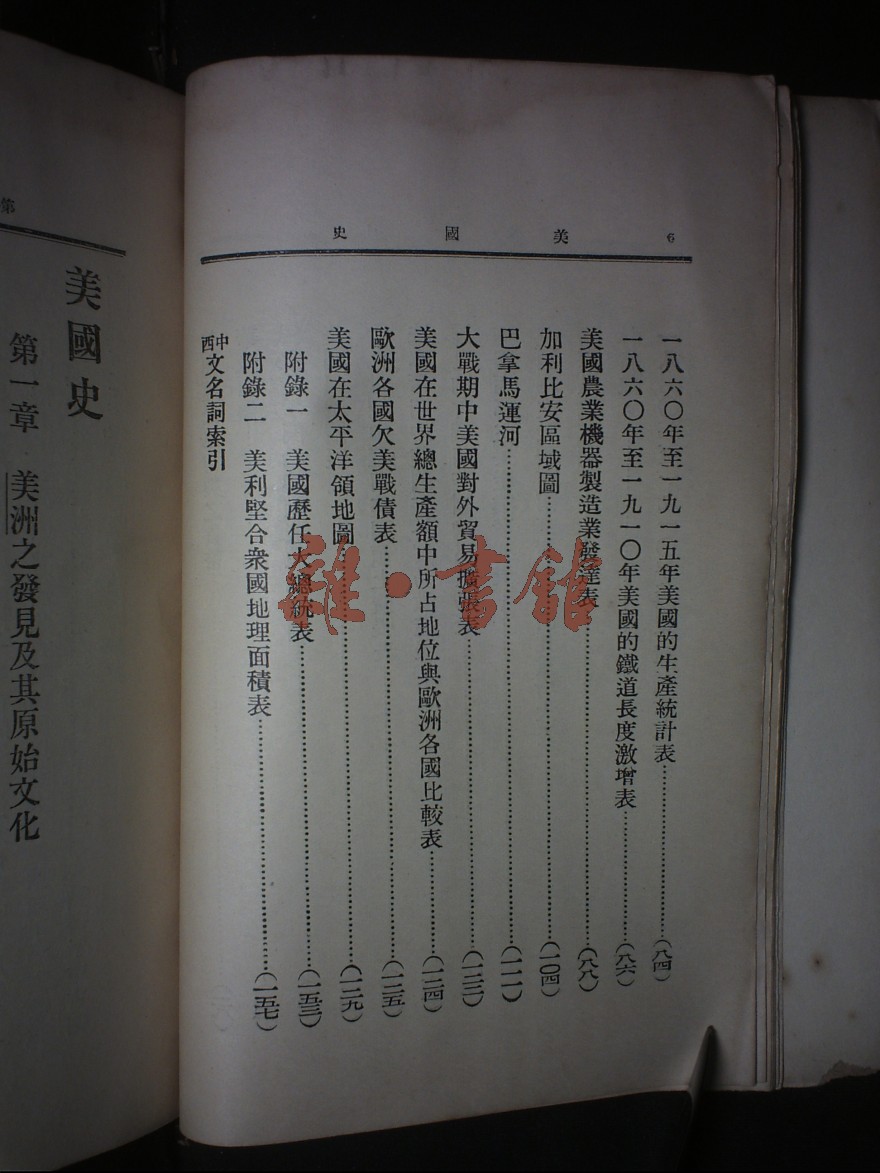 6 美國史
一八六〇年至一九一五年美國的生產統計表……(八四)
一八六〇年至一九一〇年美國的鐵道長度激增表……(八六)
美國農業機器製造業發達表……(八八)
加利比安區域圖……(一〇四)
巴拿馬運河……(一一一)
大戰期中美國對外貿易擴張表……(一二三)
美國在世界總生產額中所占地位與歐洲各國比較表……(一二四)
歐洲各國欠美戰債表……(一二五)
美國在太平洋領地圖……(一二九)
附錄一 美國歷任大總統表……(一五三)
附錄二 美利堅合衆國地理面積表……(一五七)
中西文名詞索引
第
美國史
第一章 美洲之發見及其原始文化
雜·書館